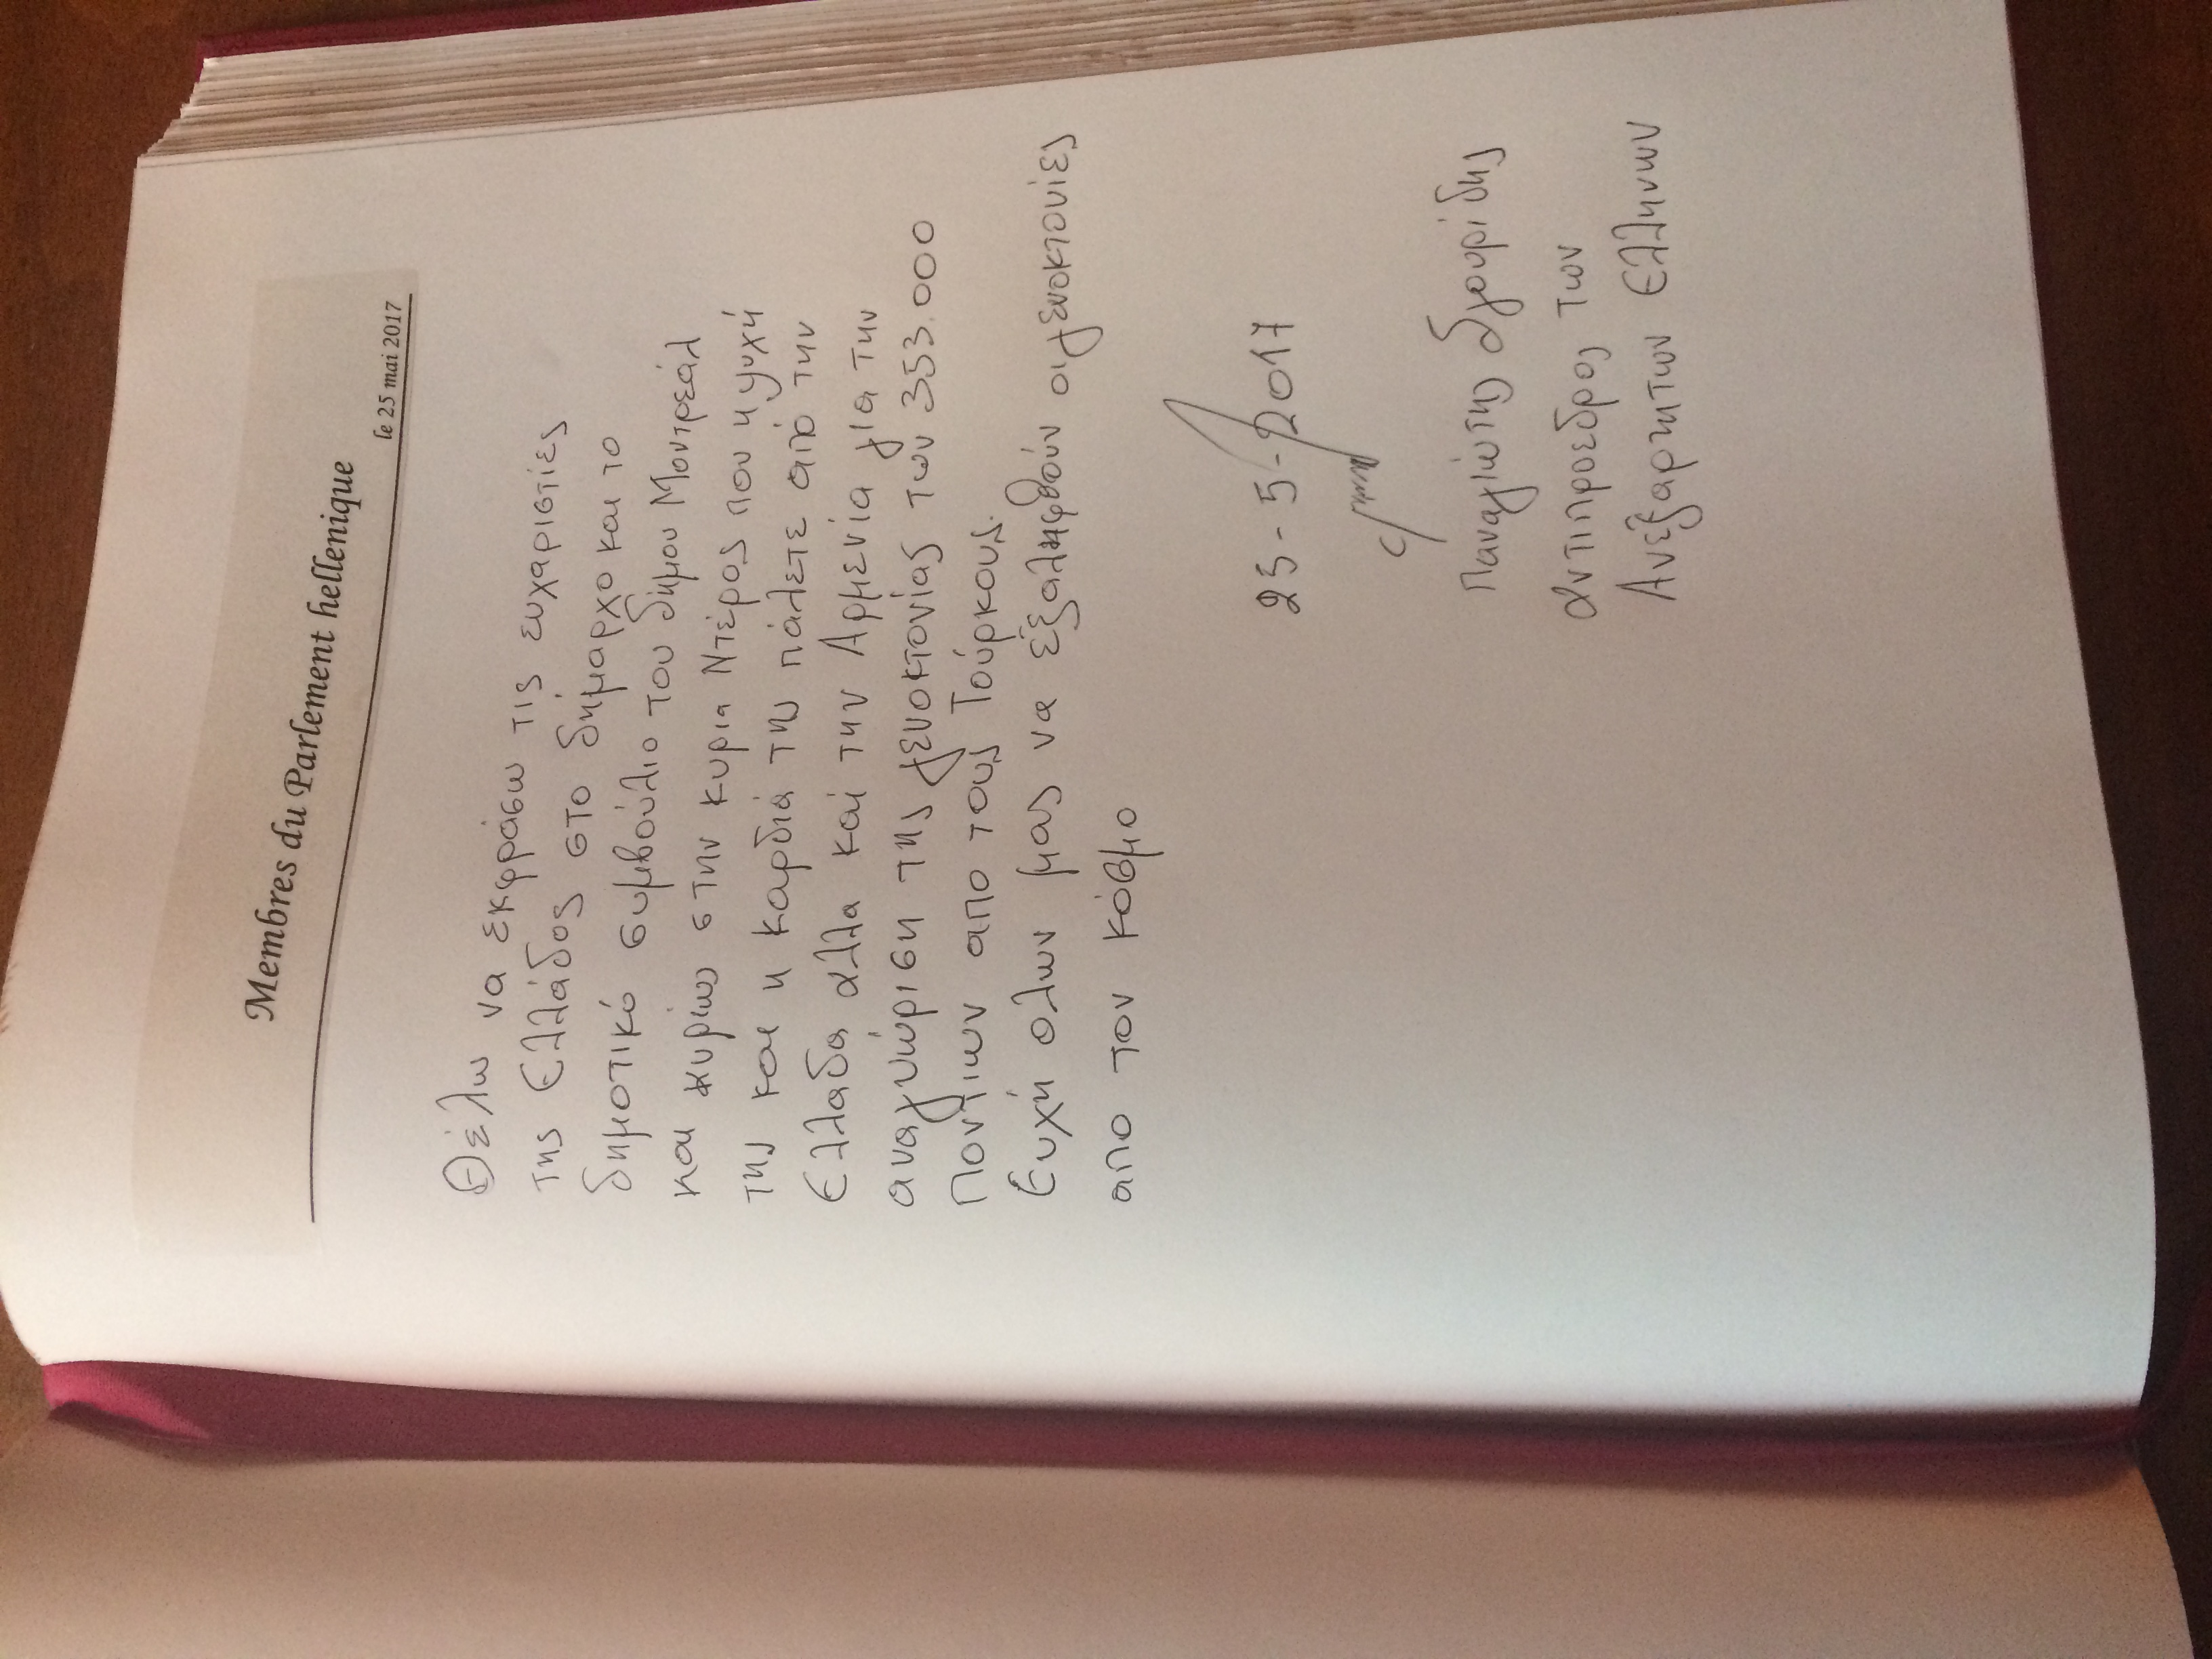 Membres du Parlement hellenique
le 25 mai 2017
Θέλω να εκφράσω τις ευχαριστίες
της Ελλάδος στο δήμαρχο και το
δημοτικό συμβούλιο του δήμου Μοντρεάλ
και κυρίως στην κυρια Ντέρος που η ψυχή
της και η καρδιά της πάλετε από την
Ελλαδα αλλα και την Αρμενία για την
αναγνώριση της γενοκτονίας των 353.000
Ποντιων απο τους Τούρκους.
Ευχή ολων μας να εξαληφθούν οι γενοκτονίες
απο τον κόσμο
25-5-2017
Παναγιώτης Σγουρίδης
αντιπροεδρος των
Ανεξαρτητων Ελληνων